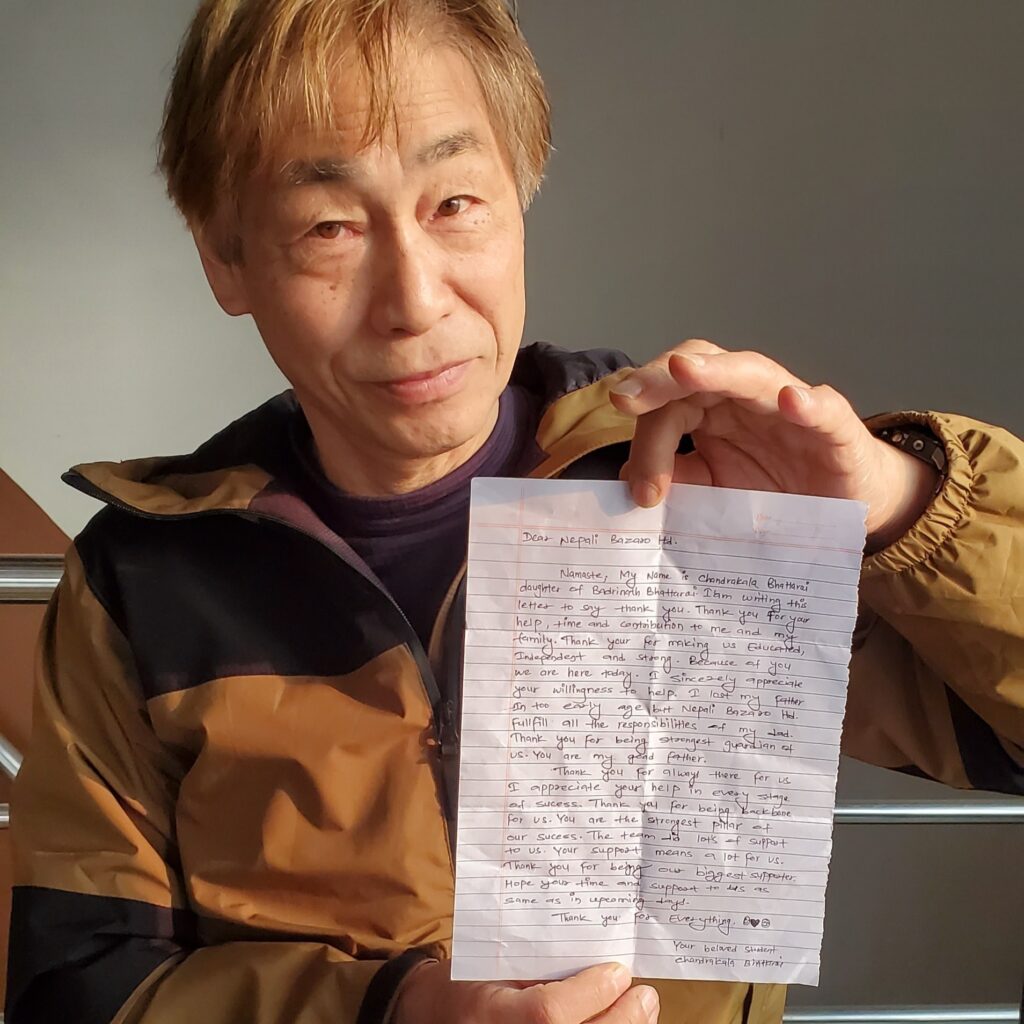 Dear Nepali Bazaro Ltd.
Namaste, My Name is Chandrakala Bhattarai
daughter of Badrinath Bhattarai I am writing this
letter to say thank you. Thank you for your
help, time and contribution to me and my
family. Thank your for making us Educated,
Independent and strong. Because of you
we are here today. I sincerely appreciate
your willingness to help. I lost my father
In too early age but Nepali Bazaro Ltd.
Fullfill all the responsibilities of my dad.
Thank you for being strongest guardian of
us. You are my good father.
Thank you for always there for us
I appreciate your help in every stage
of sucess. Thank you for being backbone
for us. You are the strongest pillar of
our sucess. The team did lots of support
to us. Your support means a lot for us.
Thank you for being our biggest supporter.
Hope your time and support to us as
same as in upcoming days.
Thank you for Everything.
Your beloved student
Chandrakala Bhattarai